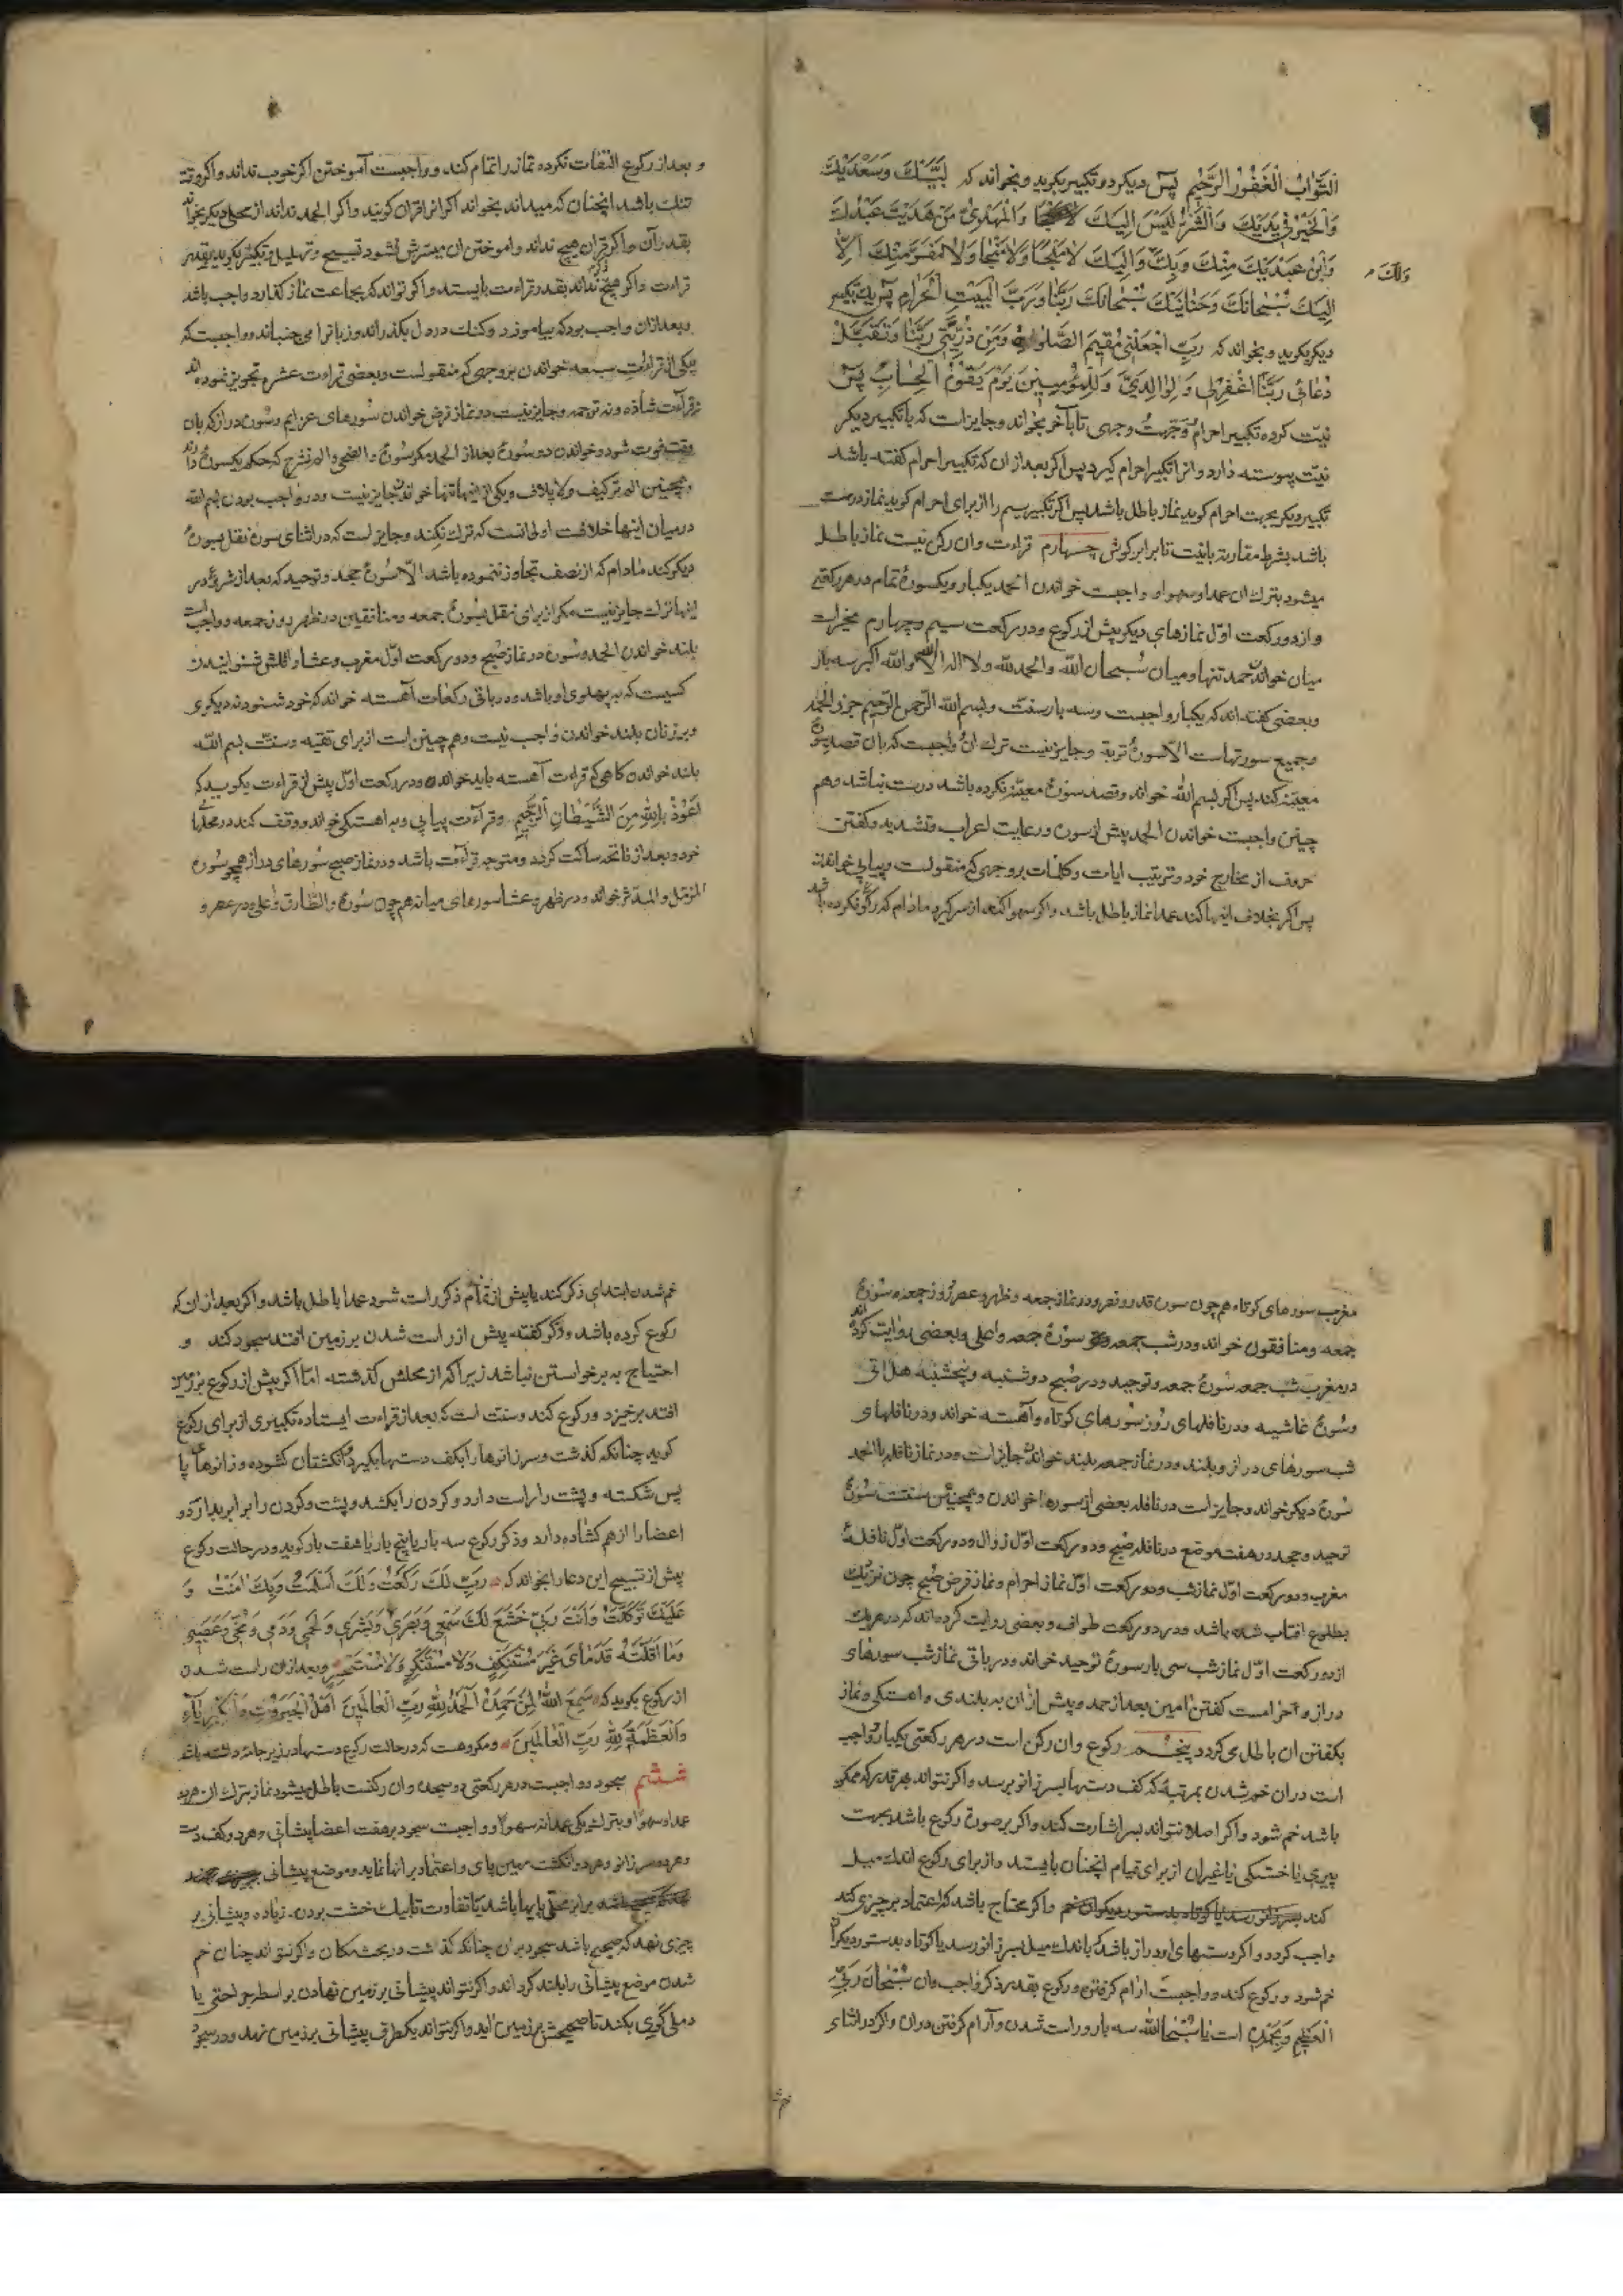 التَّوّابُ الْغَفُورُ الرَّحيمُ پس دیکر دو تکبیر بکوید و بخواند که لَبَّيْكَ وَسَعْدَيْكَ
وَالْخَيْرُ فى يَدَيْكَ وَالشَّرُّ لَيْسَ اِلَيْكَ وَالْمَهْدِىُّ مَنْ هَدَيْتَ عَبْدُكَ
وَابْنُ عَبْدَيْكَ مِنْكَ وَبِكَ وَاِلَيْكَ لا مَلْجَأَ وَلا مَنْجا وَلا مَفَرَّ مِنْكَ اِلاّ
وَلَكَ
اِلَيْكَ سُبْحانَكَ وَحَنانَيْكَ سُبْحانَكَ رَبَّنا وَرَبَّ الْبَيْتِ الْحَرامِ پس یک تکبیر
دیکر بکوید و بخواند که رَبِّ اجْعَلْنى مُقيمَ الصَّلوةِ وَمِنْ ذُرِّيَّتى رَبَّنا وَتَقَبَّلْ
دُعائى رَبَّنَا اغْفِرْلى وَلِوالِدَىَّ وَلِلْمُؤْمِنينَ يَوْمَ يَقُومُ الْحِسابُ پس
نیّت کرده تکبیر احرام وَجَّهْتُ وجهی تا بآخر بخواند و جایز است که با تکبیر دیکر
نیّت پیوسته دارد و انرا تکبیر احرام کیرد پس اکر بعد از ان که تکبیر احرام کفته باشد
تکبیر دیکر بجهت احرام کوید نماز باطل باشد پس اکر تکبیر سیم را از برای احرام کوید نماز درست
باشد بشرط مقارنه با نیت تا برابر کوش چهارم قراءت و ان رکن نیست نماز باطل
میشود بترک ان عمدا و سهوا و واجبست خواندن الحمد یکبار و یکسورۀ تمام در هر رکعتی
و از دو رکعت اوّل نمازهای دیکر پیش از رکوع و در رکعت سیم و چهارم مخیرات
میان خواندن حمد تنها و میان سُبحان اللّه والحمدللّه ولا اله الّا اللّه واللّه اکبر سه بار
و بعضی کفته اند که یکبار واجبست و سه بار سنت و بسم اللّه الرّحمن الرّحیم جزو الحمد
و جمیع سورتهاست الّا سورۀ توبه و جایز نیست ترک ان و واجبست که بان قصد سورۀ
معیّنه کند پس اکر بسم اللّه خواند و قصد سورۀ معیّنه نکرده باشد درست نباشد و هم
چنین واجبست خواندن الحمد پیش از سوره و رعایت اعراب و تشدید و کفتن
حروف از مخارج خود و ترتیب ایات و کلمات بروجهی که منقولست و پیاپی خواندن
پس اکر بخلاف اینها کند عمدا نماز باطل باشد و اکر سهوا کند از سر کیرد مادام که رکوع نکرده باشد
و بعد از رکوع التفات نکرده نماز را تمام کند و واجبست آموختن اکر خوب نداند و اکر وقت
تنک باشد انچنان که میداند بخواند اکر انرا قران کویند و اکر الحمد نداند از محلی دیکر بخواند
بقدر آن و اکر قران هیچ نداند و اموختن ان میسّرش نشود تسبیح و تهلیل و تکبیر بکوید بقدر
قراءت و اکر هیچ ذکر نداند بقدر قراءت بایستد و اکر تواند که بجماعت نماز کذارد واجب باشد
و بعد ازان واجب بود که بیاموزد و کنک در دل بکذراند و زبانرا می جنباند و واجبست که
یکی از قراءت سبعه خواندن بروجهی که منقولست و بعضی قراءت عشره تجویز نموده اند
نه قراءت شاذّه و نه ترجمه و جایز نیست در نماز فرض خواندن سورهای عزایم و سورۀ دراز که بان
وقت فوت شود و خواندن دو سورۀ بعد از الحمد مکر سورۀ والضحی و الم نشرح که حکم یکسورۀ دارند
و همچنین الم ترکیف و لایلاف و یکی از اینها تنها خواندن جایز نیست و در واجب بودن بسم اللّه
در میان اینها خلافست اولی انست که ترک نکند و جایز است که در اثنای سوره نقل بسورۀ
دیکر کند مادام که از نصف تجاوز ننموده باشد الّا سورۀ جحد و توحید که بعد از شروع در
اینها ترک جایز نیست مکر از برای نقل بسورۀ جمعه و منافقین در ظهر روز جمعه و واجبست
بلند خواندن الحمد و سوره در نماز صبح و دو رکعت اوّل مغرب و عشا و اقلش شنوانیدن
کسیست که به پهلوی او باشد و در باقی رکعات آهسته خواند که خود شنود نه دیکری
و بر زنان بلند خواندن واجب نیست و هم چنین است از برای تقیه و سنّت بسم اللّه
بلند خواندن کاهی که قراءت آهسته باید خواند و در رکعت اوّل پیش از قراءت بکوید که
اَعُوذُ بِاللّهِ مِنَ الشَّيْطانِ الرَّجيمِ و قرآءت پیاپی و به اهستکی خواند و وقف کند در محلّها
خود و بعد از فاتحه ساکت کردد و متوجه قراءت باشد و در نماز صبح سورهای دراز همچو سورۀ
المزمّل و المدثر خواند و در ظهر و عشا سورهای میانه هم چون سورۀ والطارق و اعلی و در عصر و
مغرب سورهای کوتاه هم چون سورۀ قدر و نصر و در نماز جمعه و ظهر و عصر روز جمعه سورۀ
جمعه و منافقون خواند و در شب جمعه سورۀ جمعه و اعلی و بعضی روایت کرده اند
در مغرب شب جمعه سورۀ جمعه و توحید و در صبح دوشنبه و پنجشنبه هل اتی
و سورۀ غاشیه و در نافلهای روز سورهای کوتاه و آهسته خواند و در نافلهای
شب سورهای دراز و بلند و در نماز جمعه بلند خواندن جایز است و در نماز نافله با الحمد
سورۀ دیکر خواند و جایز است در نافله بعضی از سورها خواندن و همچنین سنتست سورۀ
توحید و جحد در هفت موضع در نافله صبح و دو رکعت اوّل زوال و دو رکعت اوّل نافلۀ
مغرب و دو رکعت اوّل نماز شب و دو رکعت اوّل نماز احرام و نماز فرض صبح چون نزدیک
بطلوع افتاب شده باشد و در دو رکعت طواف و بعضی روایت کرده اند که در هریک
از دو رکعت اوّل نماز شب سی بار سورۀ توحید خواند و در باقی نماز شب سورهای
دراز و حرامست کفتن امین بعد از حمد و پیش از ان به بلندی و اهستکی و نماز
بکفتن ان باطل می کردد پنجم رکوع و ان رکن است در هر رکعتی یکبار واجب
است دران خم شدن بمرتبۀ که کف دستها بسر زانو برسد و اکر نتواند هر قدر که ممکن
باشد خم شود و اکر اصلا نتواند بسر اشارت کند و اکر بر صورة رکوع باشد بجهت
پیری یا خستکی یا غیر ان از برای قیام انچنان بایستد و از برای رکوع اندک میل
کند بسر زانو رسد یا کوتاه بدستور دیکران خم و اکر محتاج باشد که اعتماد بر چیزی کند
واجب کردد و اکر دستهای او دراز باشد که باندک میل بسر زانو رسد یا کوتاه بدستور دیکران
خم شود و رکوع کند و واجبست ارام کرفتن در رکوع بقدر ذکر واجب وان سُبْحانَ رَبِّىَ
الْعَظيمِ وَبِحَمْدِهِ است یا سُبْحانَ اللّه سه بار و راست شدن و آرام کرفتن دران و اکر در اثنای
خم شدن ابتدای ذکر کند یا پیش از تمام ذکر راست شود عمدا باطل باشد و اکر بعد از ان که
رکوع کرده باشد و ذکر کفته پیش از راست شدن بر زمین افتد سجود کند و
احتیاج به برخواستن نباشد زیرا که از محلش کذشته امّا اکر پیش از رکوع بر زمین
افتد برخیزد و رکوع کند و سنت است که بعد از قراءت ایستاده تکبیری از برای رکوع
کوید چنانکه کذشت و سر زانوها را بکف دستها بکیرد و انکشتان کشوده و زانوها را با
پس شکسته و پشت را راست دارد و کردن را بکشد و پشت و کردن را برابر بدارد و
اعضا را از هم کشاده دارد و ذکر رکوع سه بار یا پنج بار یا هفت بار کوید و در حالت رکوع
پیش از تسبیح این دعا را بخواند که رَبِّ لَكَ رَكَعْتُ وَلَكَ اَسْلَمْتُ وَبِكَ امَنْتُ وَ
عَلَيْكَ تَوَكَّلْتُ وَاَنْتَ رَبّى خَشَعَ لَكَ سَمْعى وَبَصَرى وَبَشَرى وَلَحْمى وَدَمى وَمُخّى وَعَصَبى
وَما اَقَلَّتْهُ قَدَماىَ غَيْرَ مُسْتَنْكِفٍ وَلا مُسْتَكْبِرٍ وَلا مُسْتَحْسِرٍ و بعد ازان راست شدن
از رکوع بکوید که سَمِعَ اللّهُ لِمَنْ حَمِدَهُ اَلْحَمْدُ لِلّهِ رَبِّ الْعالَمينَ اَهْلِ الْجَبَرُوتِ وَالْكِبْرِيآءِ
وَالْعَظَمَةُ لِلّهِ رَبِّ الْعالَمينَ و مکروهست که در حالت رکوع دستها در زیر جامه داشته باشد
ششم سجود و واجبست در هر رکعتی دو سجده وان رکنست باطل میشود نماز بترک ان هر دو
عمدا و سهوًا و بترک یکی عمدا نه سهوًا و واجبست سجود بر هفت اعضا پیشانی و هر دو کف دست
و هر دو سر زانو و هر دو انکشت مهین پای و اعتماد بر انها نماید و موضع پیشانی
برابر محل پایها باشد یا تفاوت تا بیک خشت بودن زیاده و پیشانی بر
چیزی نهد که صحیح باشد سجود بران چنانکه کذشت در بحث مکان و اکر نتواند چنان خم
شدن موضع پیشانی را بلند کرداند و اکر نتواند پیشانی بر زمین نهادن بواسطه جراحتی یا
دملی کوی بکند تا صحیحش بر زمین اید و اکر نتواند یکطرف پیشانی بر زمین نهد و در سجو
خم شد